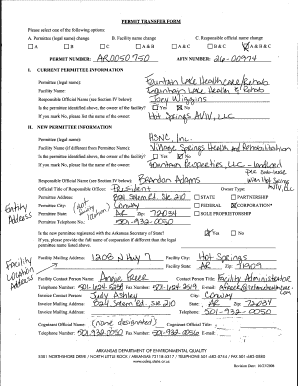 PERMIT TRANSFER FORM
Please select one of the following options:
A. Permittee (legal name) change B. Facility name change C. Responsible official name change
A B C A & B A & C B & C A & B & C
PERMIT NUMBER: AR0050750 AFIN NUMBER: 26-00974
I. CURRENT PERMITTEE INFORMATION
Permittee (legal name): Fountain Lake Healthcare & Rehab
Facility Name: Fountain Lake Health & Rehab
Responsible Official Name (see Section IV below): Joey Wiggins
Is the permittee identified above, the owner of the facility? Yes No
If you mark No, please list the name of the owner: Hot Springs AVIV, LLC
II. NEW PERMITTEE INFORMATION
Permittee (legal name): HSNC, Inc.
Facility Name (if different from Permittee Name): Village Springs Health and Rehabilitation
Is the permittee identified above, the owner of the facility? Yes No
If you mark No, please list the name of the owner: Fountain Properties, LLC - Landlord
with Hot Springs
AVIV, LLC
Responsible Official Name (see Section IV below): Brandon Adams
Official Title of Responsible Officer: President Owner Type:
Permittee Address: 824 Salem Rd. Ste 210 STATE PARTNERSHIP
Permittee City: Conway FEDERAL CORPORATION
Permittee State: AR Zip: 72034 SOLE PROPRIETORSHIP
Permittee Telephone No.: 501-932-0050
Entity
Address
(not
facility
location)
Is the new permittee registered with the Arkansas Secretary of State? Yes No
If yes, please provide the full name of corporation if different than the legal
permittee name listed above.
Facility
Location
Address
Facility Mailing Address: 1208 N Hwy 7 Facility City: Hot Springs
Facility State: AR Zip: 71909
Facility Contact Person Name: Annie Freer Contact Person Title: Facility Administrator
Telephone Number: Fax Number: 501-624-2149 E-mail
Invoice Contact Person: Judy Ashley City: Conway
Invoice Mailing Address: 824 Salem Rd. Ste 210 State: AR Zip: 72034
Invoice Mailing Address: Telephone: 501-932-0050
Cognizant Official Name: (none designated) Cognizant Official Title:
Telephone Number: 501-932-0050 Fax Number: 501-932-0055 E-mail:
ARKANSAS DEPARTMENT OF ENVIRONMENTAL QUALITY
5301 NORTHSHORE DRIVE / NORTH LITTLE ROCK / ARKANSAS 72118-5317 / TELEPHONE 501-682-0744 / FAX 501-682-0880
www.adeq.state.ar.us
Revision Date: 10/23/2008